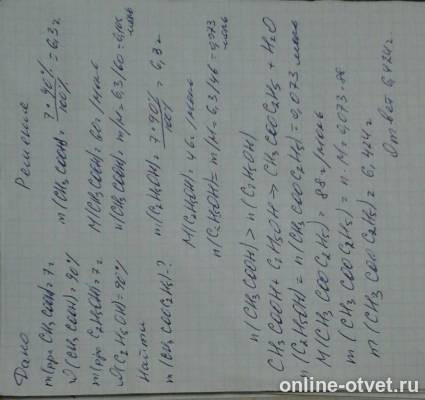 Дано
m(р-ра CH3COOH) = 7 г
ω(CH3COOH) = 90%
m(р-ра C2H5OH) = 7 г
ω(C2H5OH) = 90%
Найти
m(CH3COOC2H5) - ?
Решение
m(CH3COOH) = 7 * 90% / 100% = 6,3 г
M(CH3COOH) = 60 г/моль
n(CH3COOH) = m/M = 6,3/60 = 0,105 моль
m(C2H5OH) = 7 * 90% / 100% = 6,3 г
M(C2H5OH) = 46 г/моль
n(C2H5OH) = m/M = 6,3/46 = 0,073 моль
n(CH3COOH) > n(C2H5OH)
CH3COOH + C2H5OH > CH3COOC2H5 + H2O
n(C2H5OH) = n(CH3COOC2H5) = 0,073 моль
M(CH3COOC2H5) = 88 г/моль
m(CH3COOC2H5) = n·M = 0,073·88
m(CH3COOC2H5) = 6,424 г
Ответ 6,424 г
online-otvet.ru